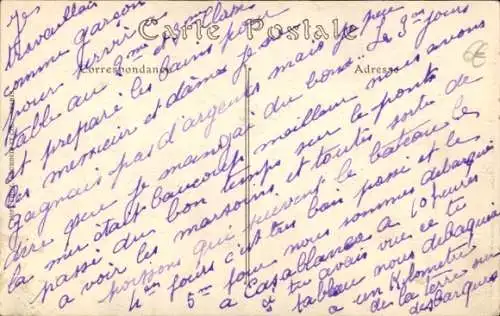 Carte Postale
Correspondance
Adresse
Jes
travaillait
comme garçon
pour servir
table au 2me et 3me classe
et preparé les bains pour
les messieur et dames je
gagnais pas d'argents mais je puis
dire que je mangai du bons. Le 3me jours
la mer était beaucoup meilleur nous avons
passé du bon temps sur le ponts
a voir les marsoins et toutes sorte de
poissons que suivent le bateau le
4me jours c'est tres bais passé et le
5me jour nous sommes debarqué
a Casablanca a 10 heures
si tu avais vue ce
tableau nous debarquer
a un Kilometre
de la terre
des barques